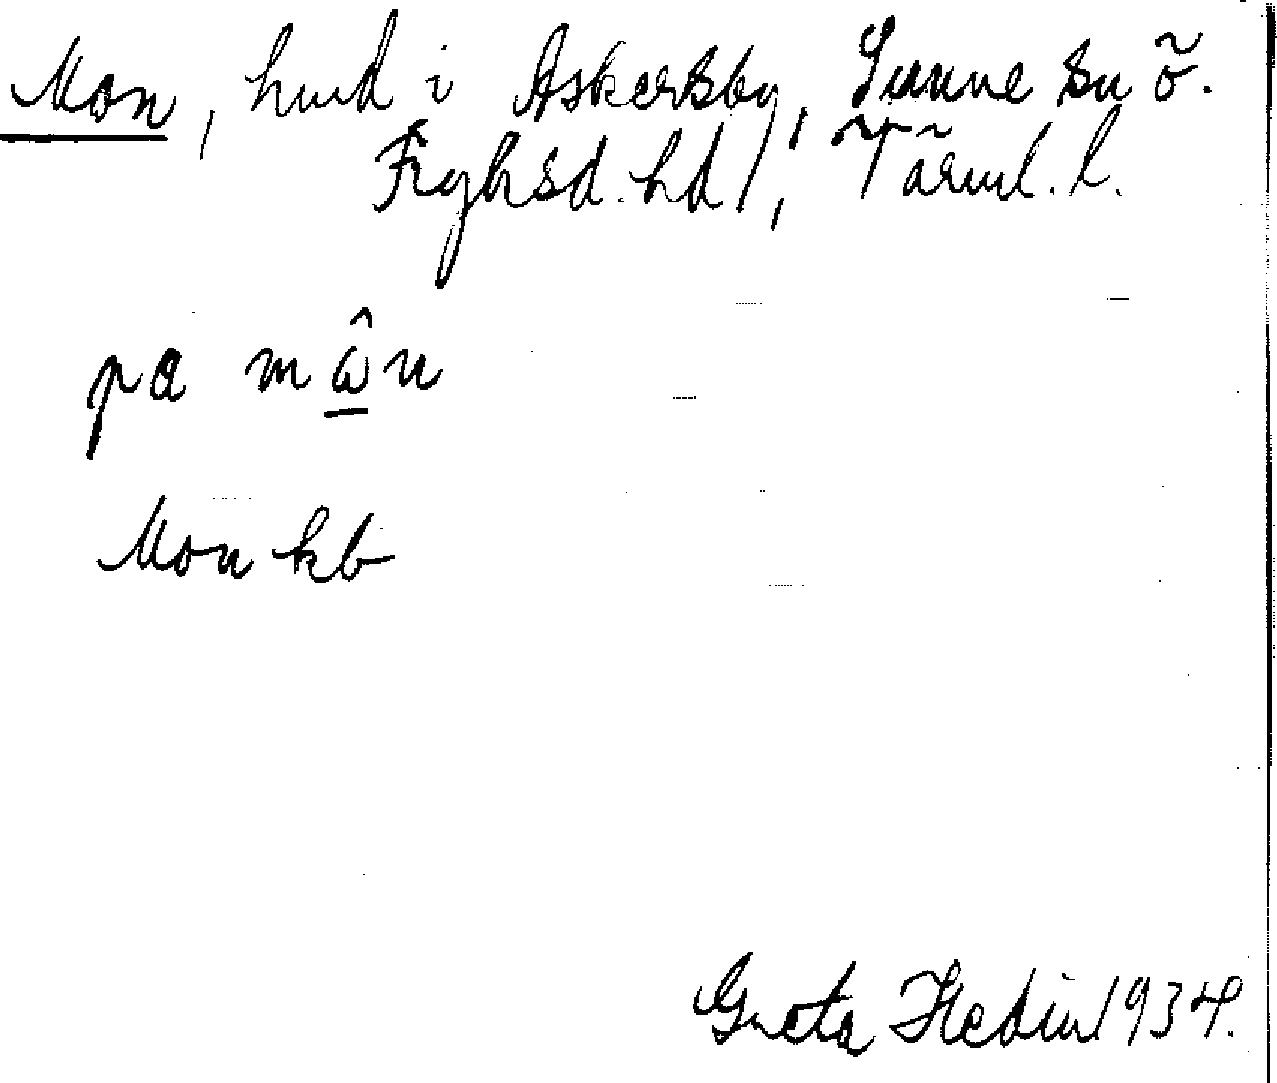 Mon, hmd i Askersby, Sunne sn ö.
Fryksd. hd, Värml. l.
pa mω̂n
Mon kb
Greta Hedin 1934.